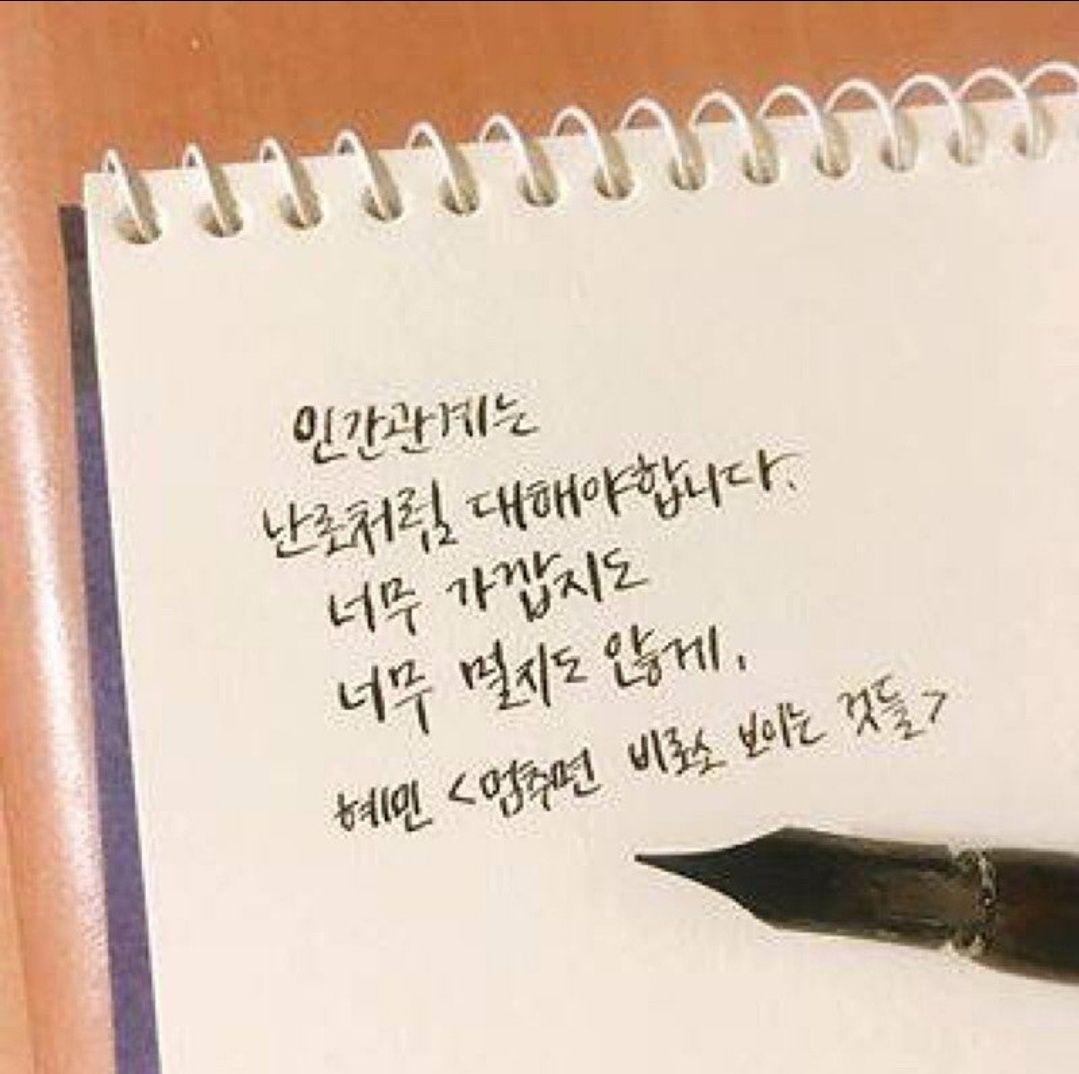 인간관계는
난로처럼 대해야합니다.
너무 가깝지도
너무 멀지도 않게.
혜민 <멈추면 비로소 보이는 것들>